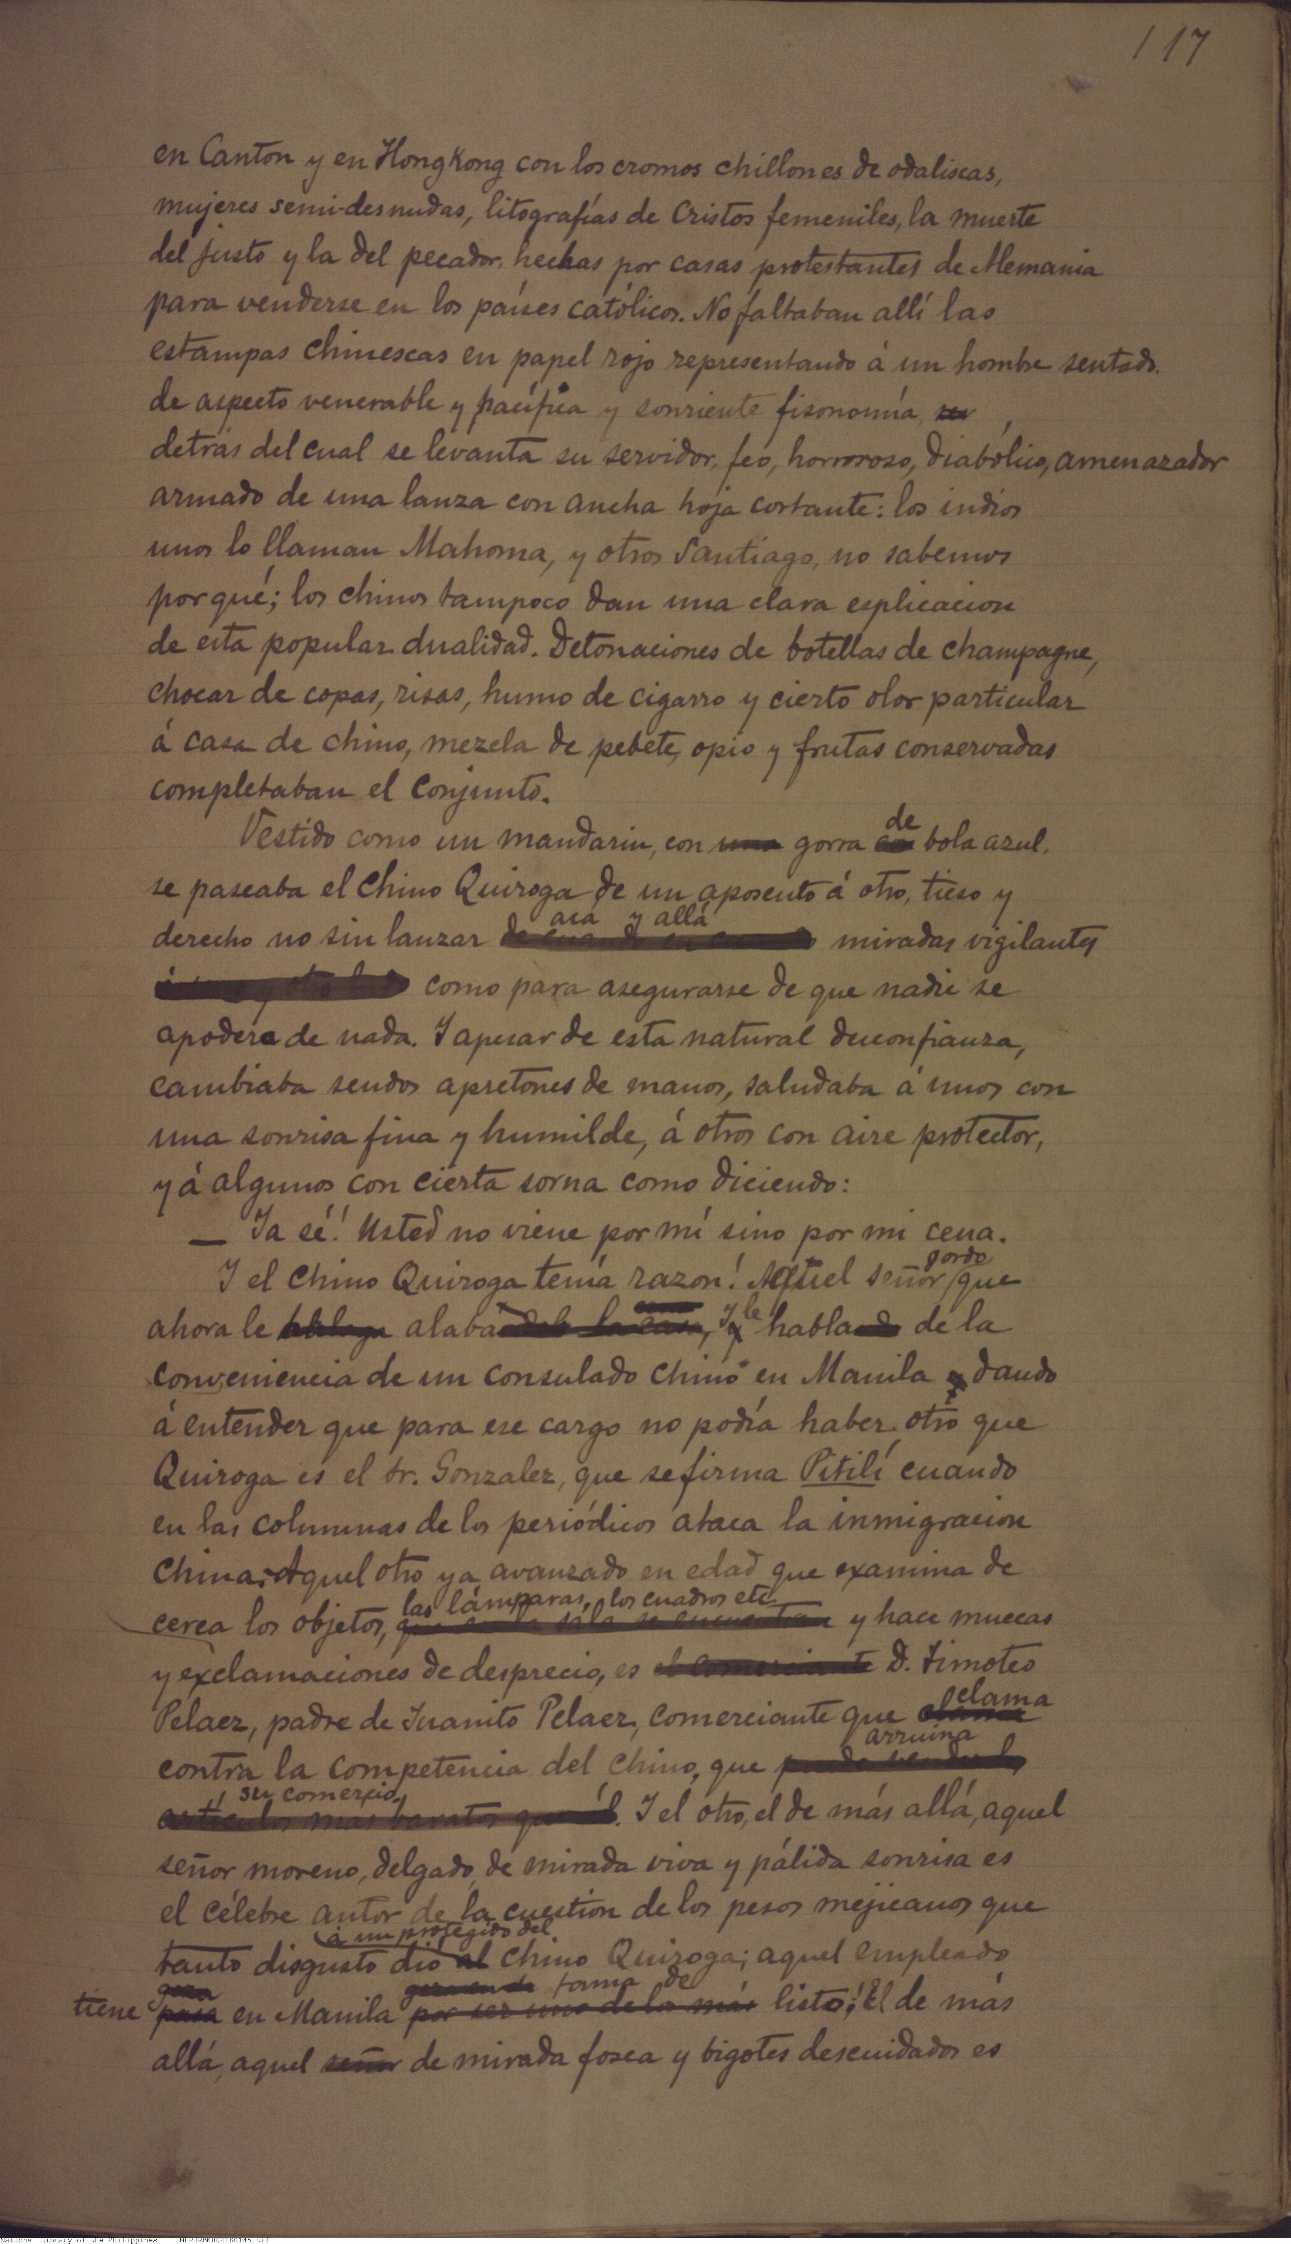 117
en Canton y en Hongkong con los cromos chillones de odaliscas,
mujeres semi-desnudas, litografías de Cristos femeniles, la muerte
del justo y la del pecador, hechas por casas protestantes de Alemania
para venderse en los países católicos. No faltaban allí las
estampas chinescas en papel rojo representando á un hombre sentado,
de aspecto venerable y pacífica y sonriente fisonomía, su,
detrás del cual se levanta su servidor, feo, horroroso, diabólico, amenazador
armado de una lanza con ancha hoja cortante: los indios
unos lo llaman Mahoma, y otros Santiago, no sabemos
por qué; los chinos tampoco dan una clara esplicacion
de esta popular dualidad. Detonaciones de botellas de champagne,
chocar de copas, risas, humo de cigarro y cierto olor particular
á casa de chino, mezcla de pebete, opio y frutas conservadas
completaban el conjunto.
de
Vestido como un mandarin, con una gorra con bola azul,
se paseaba el chino Quiroga de un aposento á otro, tieso y
aca y allá
derecho no sin lanzar de cuando en cuando miradas vigilantes
como para asegurarse de que nadie se
apodere de nada. Y apesar de esta natural desconfianza,
cambiaba sendos apretones de manos, saludaba á unos con
una sonrisa fina y humilde, á otros con aire protector,
y á algunos con cierta sorna como diciendo:
— Ya sé! Usted no viene por mí sino por mi cena.
gordo
Y el chino Quiroga tenía razon! Aquel señor que
y le
ahora le alaba la casa, y hablando de la
conveniencia de un consulado chino en Manila y dando
á entender que para ese cargo no podía haber otro que
Quiroga es el Sr. Gonzalez, que se firma Pitilí cuando
en las columnas de los periódicos ataca la inmigracion
china. Aquel otro ya avanzado en edad que examina de
las lámparas, los cuadros etc.
cerca los objetos, que en la sala se encuentran y hace muecas
y exclamaciones de desprecio, es el comerciante D. Timoteo
clama
Pelaez, padre de Juanito Pelaez, comerciante que clama
arruina
contra la competencia del chino, que
su comercio.
artículos mas baratos que él. Y el otro, el de más allá, aquel
señor moreno, delgado, de mirada viva y pálida sonrisa es
el célebre autor de la cuestion de los pesos mejicanos que
á un protegido del
tanto disgusto dió al chino Quiroga; aquel empleado
goza goza en de fama de
tiene pasa en Manila por ser uno de los más listo; El de más
allá, aquel señor de mirada fosca y bigotes descuidados es